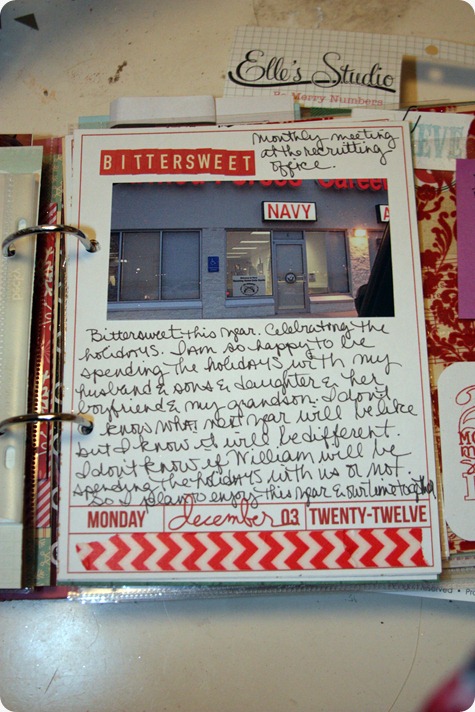 Elle's Studio
By Merry Numbers
EVE
BITTERSWEET
Monthly meeting
at the recruiting
office.
Forces Career
NAVY
A
Bittersweet this year. Celebrating the
holidays. I am so happy to be
spending the holidays with my
husband & sons & daughter & her
boyfriend & my grandson. I don't
know what next year will be like
but I know it will be different.
I dont know if William will be
spending the holidays with us or not.
So I plan to enjoy this year & our time together
MONDAY december 03 TWENTY-TWELVE